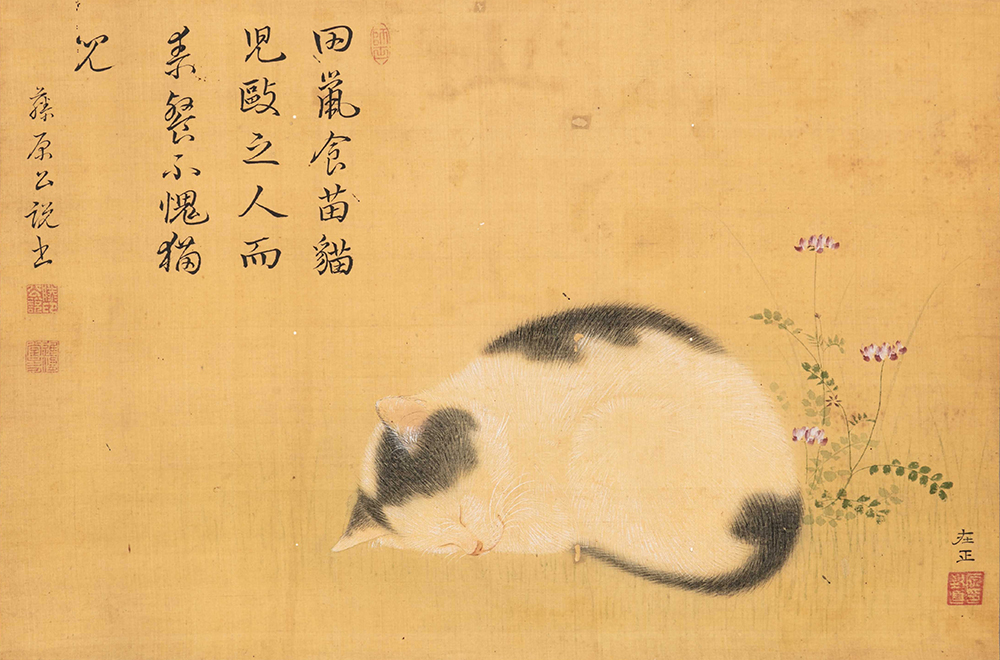 田鼡食苗貓
児毆之人而
素餐不愧猫
児
藤原公説書
在正